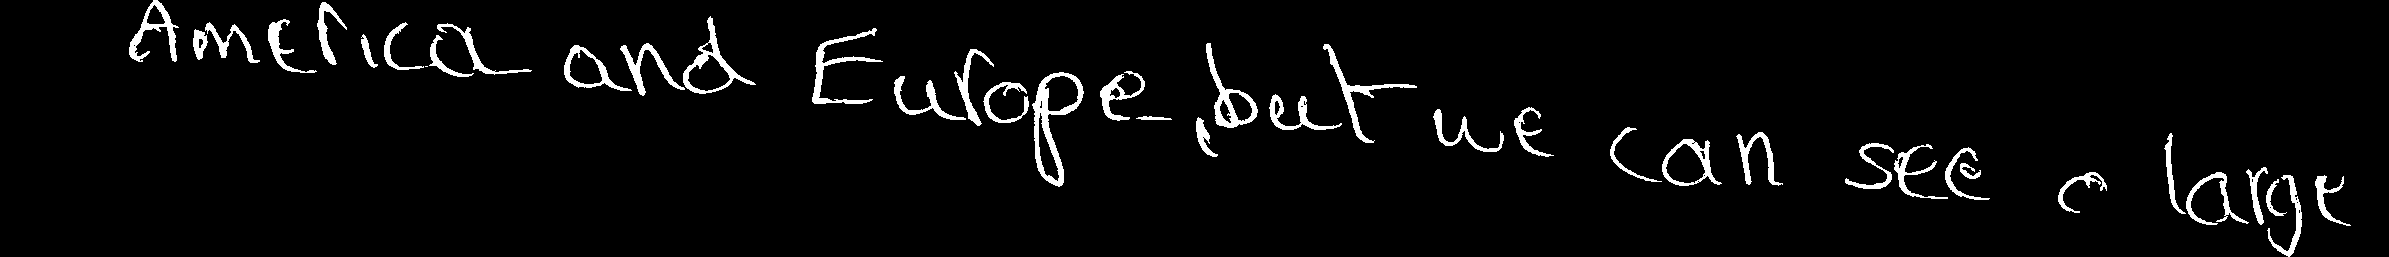 America and Europe, but we can see a large